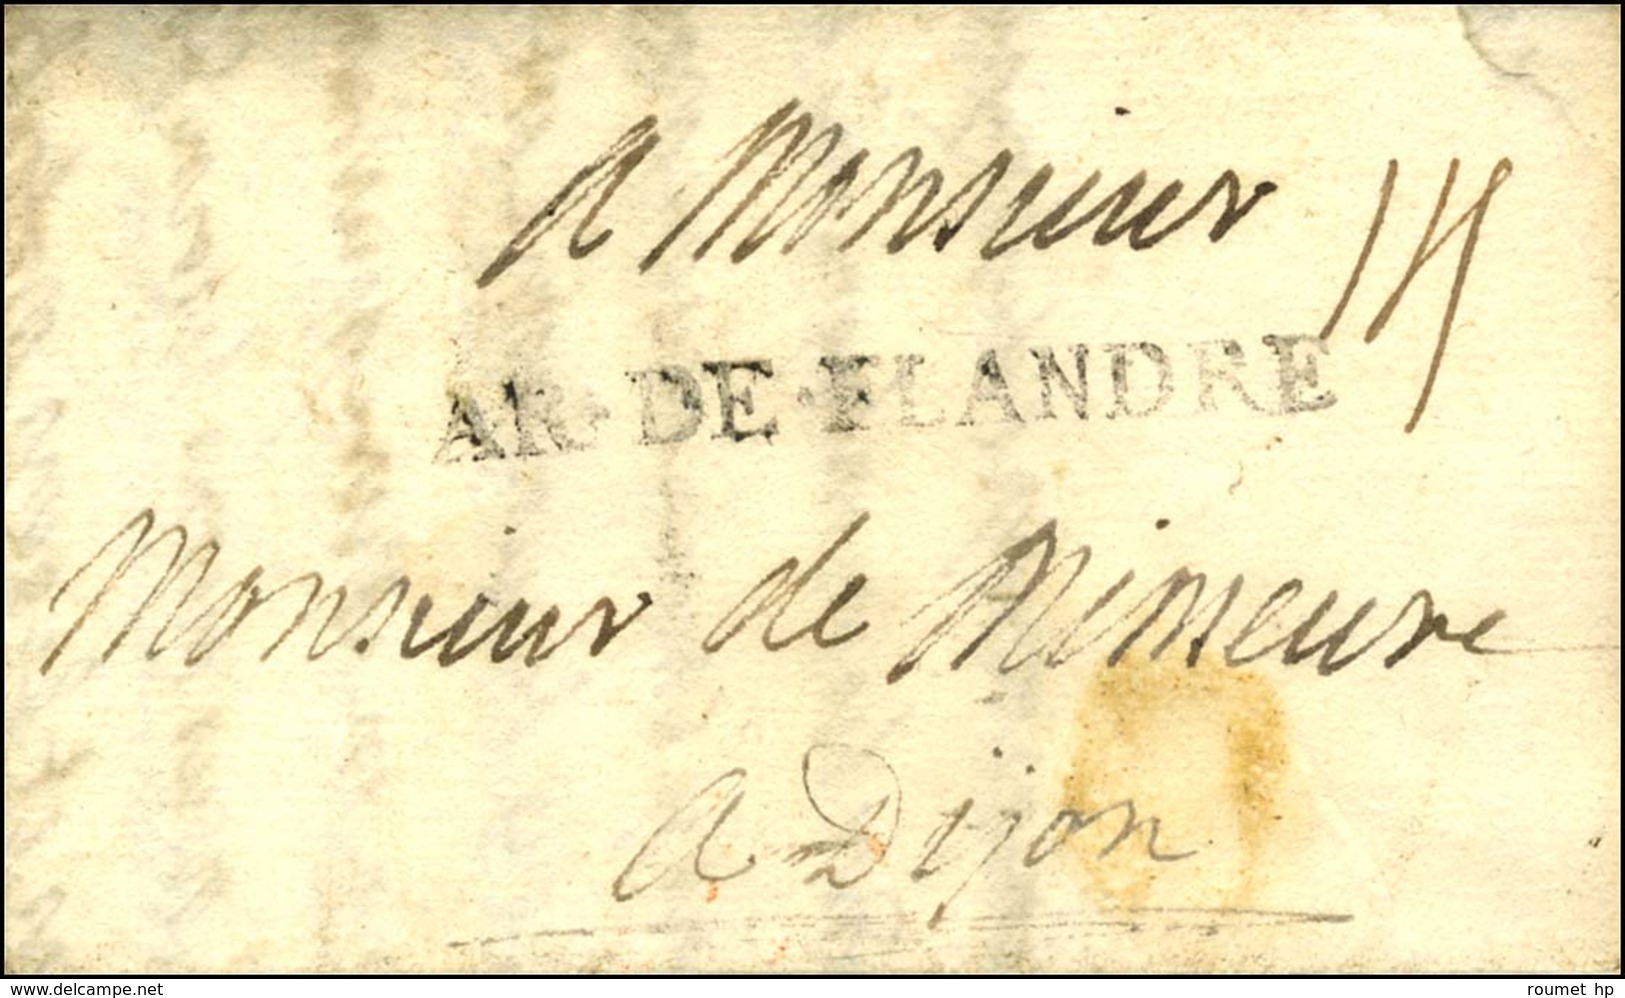 A Monsieur
AR·DE·FLANDRE
Monsieur de Mimeure
A Dijon
www.delcampe.net
roumet hp